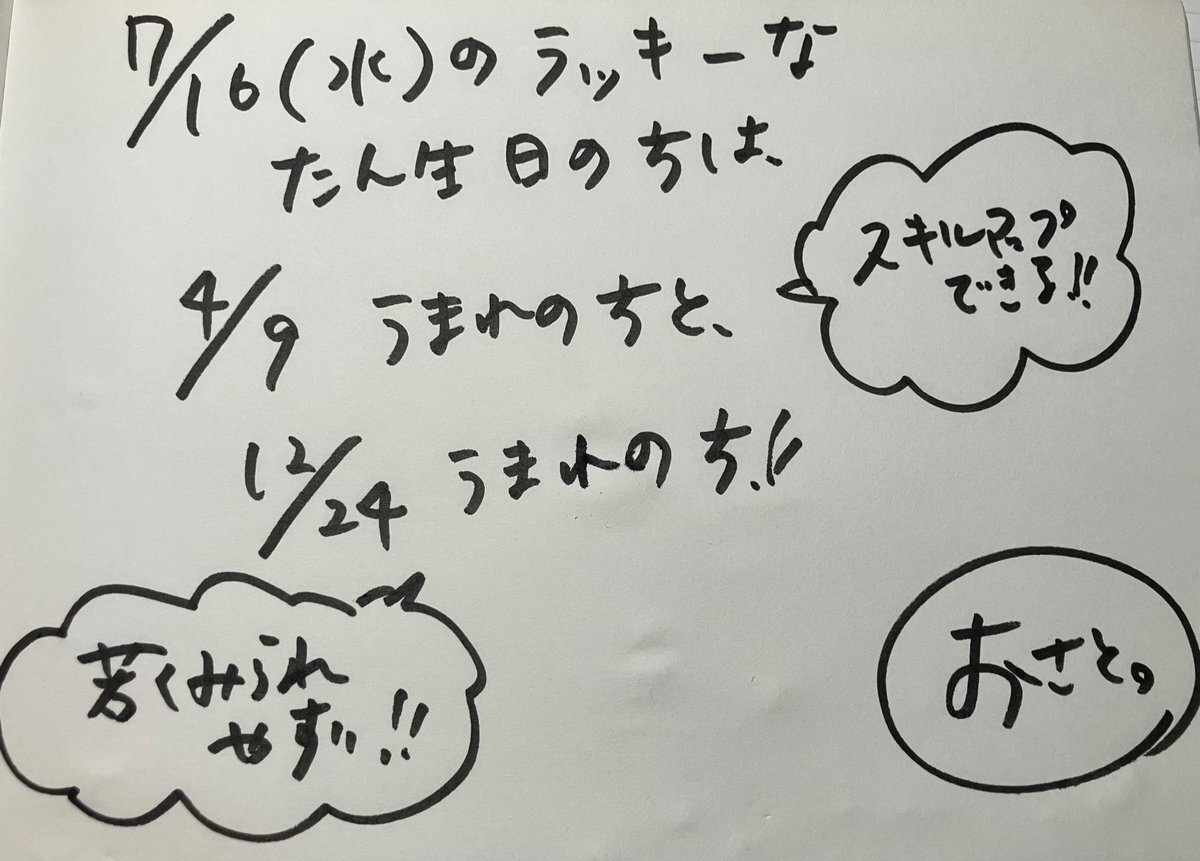 7/16(水)のラッキーな
たん生日の方は、
4/9 うまれの方と、
スキルアップ
できる!!
12/24 うまれの方!!
若くみられ
やすい!!
おさと。